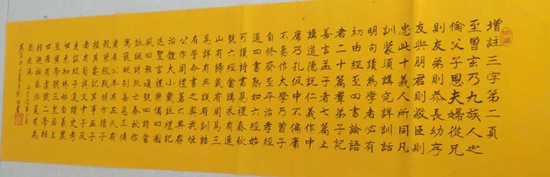 增註三字第二頁
至曾玄乃九族人之
倫父子恩夫婦從兄
則友弟則恭長幼序
友與朋君則敬臣則
忠此十義人所同凡
訓蒙須講究詳訓詁
明句讀為學者必有
初由經至四書論語
者二十篇羣弟子記
善言孟子者七篇止
講道德說仁義作中
庸乃孔伋中不偏庸
不易作大學乃曾子
自修齊至平治孝經
通四書熟如六經始
可讀詩書易禮春秋
號六經當講求有連
山有歸藏有周易三
易詳有典謨有訓誥
有誓命書之奧我姬
公作周禮著六官存
治體大小戴註禮記
述聖言禮樂備曰國
風曰雅頌號四詩當
諷詠詩既亡春秋作
寓褒貶別善惡三傳
者有公羊有左氏有
穀梁經既明方讀子
撮其要記其事五子
者有荀揚文中子及
老莊經子通讀諸史考
世系知終始自羲農
至黃帝號三皇居上
世唐有虞號二帝相
揖遜稱盛世夏有禹